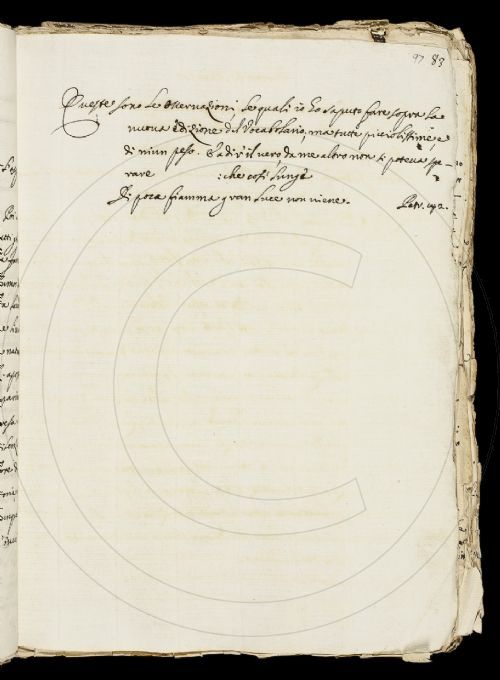 97 83
Queste sono le Osservazioni, le quali io ho saputo fare sopra la
nuova Edizione del Vocabolario, ma tutte piccolissime, e
di niun peso. E a dir il vero, da me altro non si poteva spe-
rare : che così lungi
Di poca fiamma gran luce non viene. Petr.